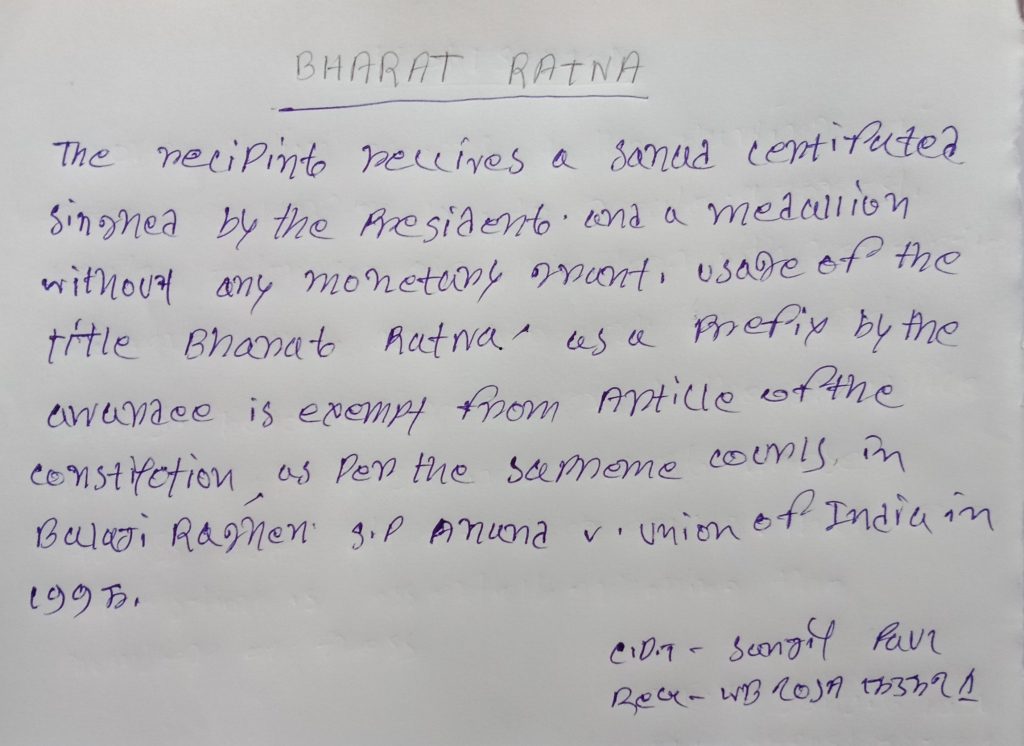 BHARAT RATNA
The recipint receives a sanad certificated
singned by the President. and a medallion
without any monetary grant. usage of the
title Bharat Ratna as a Prefix by the
awardee is exempt from Article of the
constitution as Per the supreme courts, in
Balaji Raghen S.P Anand v. union of India in
1995.